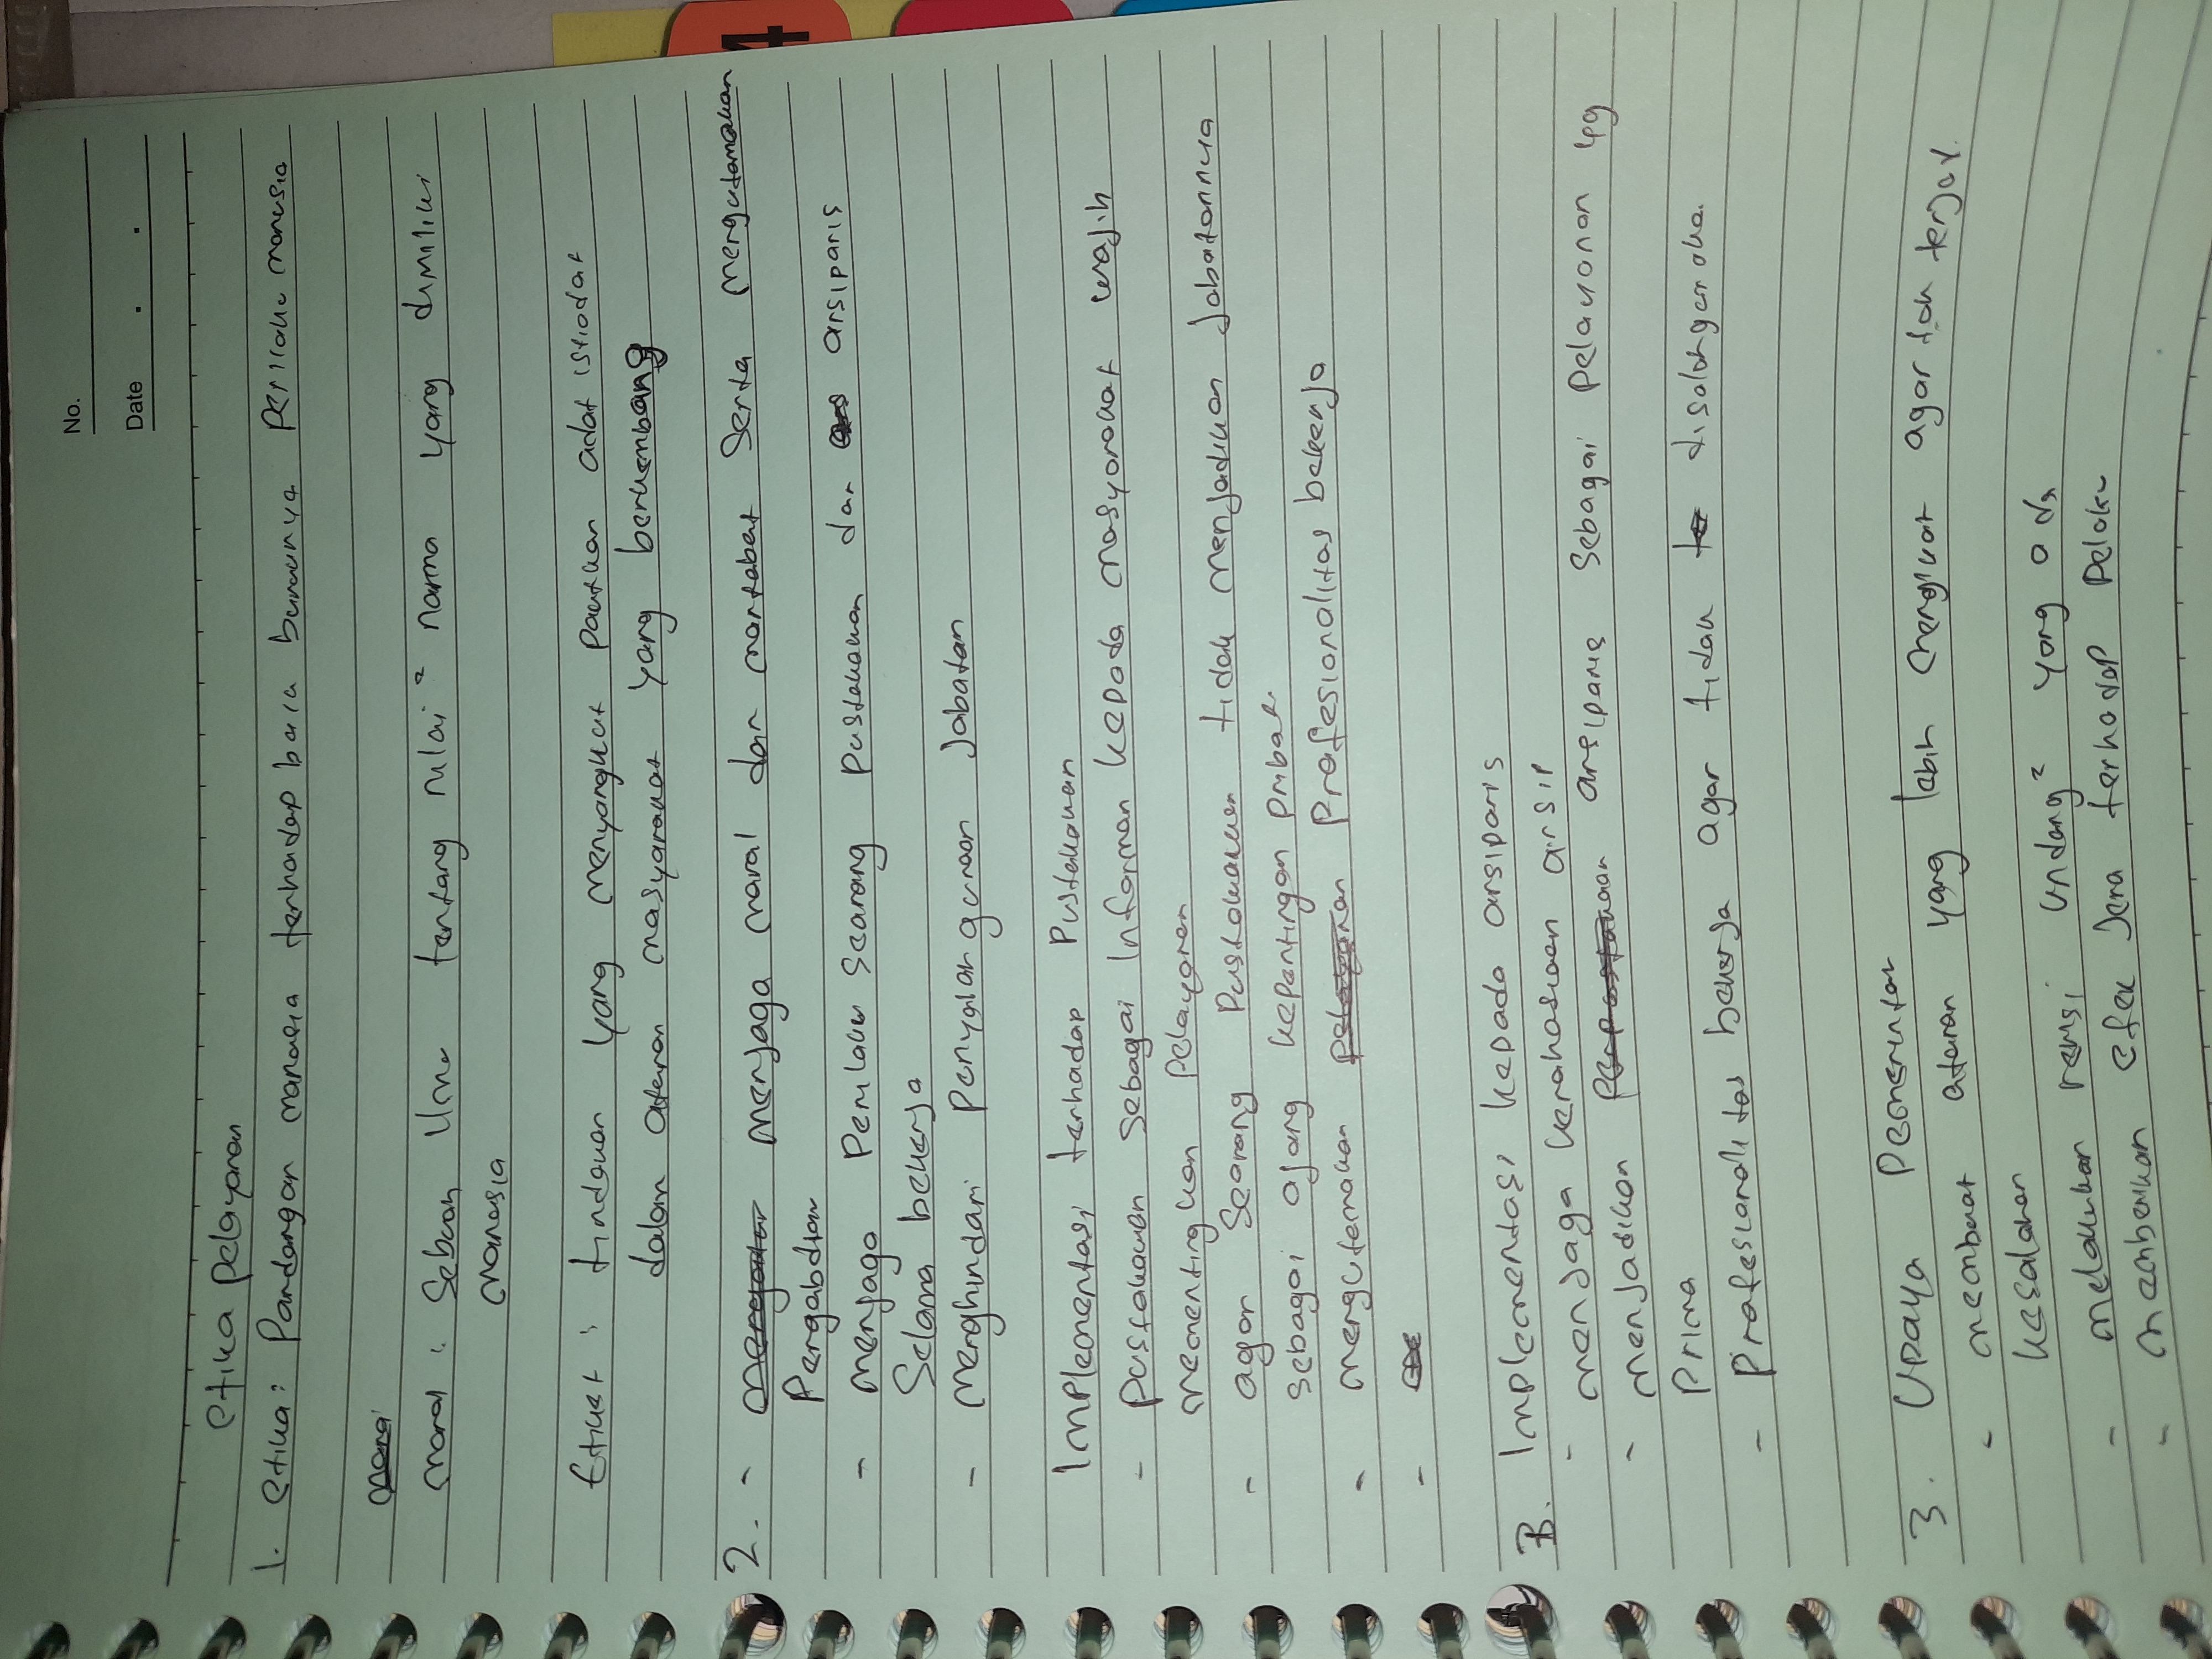 No.
Date . .
etika pelayanan
1. etika: Pandangan manusia terhadap baik buruknya Perilaku manusia
moral : Sebuah ilmu tentang nilai² norma yang dimiliki
manusia
Etiket : tindakan yang menyangkut adat istiadat
dalam aturan masyarakat yang berkembang
2. - menjaga moral dan martabat serta mengutamakan
Pengabdian
- menjaga Perilaku seorang pustakawan dan arsiparis
Selama bekerja
- menghindari Penyalahgunaan Jabatan
Implementasi terhadap Pustakawan
- pustakawan sebagai Informan kepada masyarakat wajib
mementingkan pelayanan
- agar seorang Pustakawan tidak menjadikan Jabatannya
sebagai ajang kepentingan pribadi
- mengutamakan Profesionalitas bekerja
-
B. Implementasi kepada arsiparis
- menjaga kerahasiaan arsip
- menjadikan arsiparis sebagai pelayanan yg
Prima
- Profesionalitas bekerja agar tidak
3. Upaya Pemerintah
- membuat aturan yang lebih mengikat agar tak
kesalahan
- melakukan revisi undang² yang ada
- memberikan efek Jera terhadap Pelaku